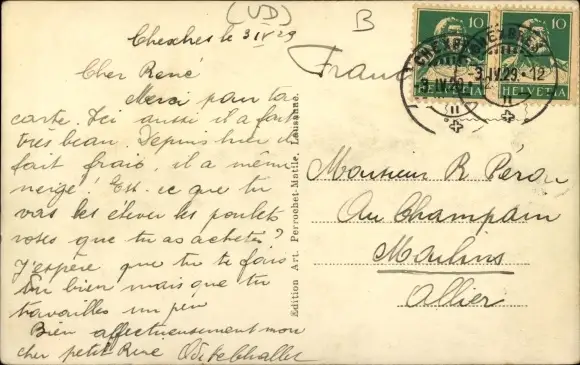 (VD)
B
le 3 IV 29
Cher René
Merci pour ta
carte. Ici aussi il a fait
très beau. Depuis hier il
fait frais, il a même
neigé! Est-ce que tu
vas les élever les poulets
roses que tu as achetés?
J'espère que tu te fais
du bien mais que tu
travailles un peu
Bien affectueusement mon
cher petit René
Édition Art. Perrochet-Matile, Lausanne.
10 10
HELVETIA HELVETIA
CHEXBRES
-3.IV.29.-12
France
Monsieur R Péron
Au Champain
Moulins
Allier